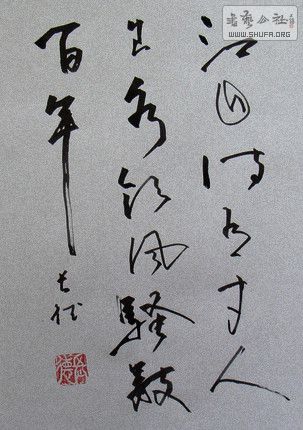 书艺公社
WWW.SHUFA.ORG
江山代有才人
出各领风骚数
百年